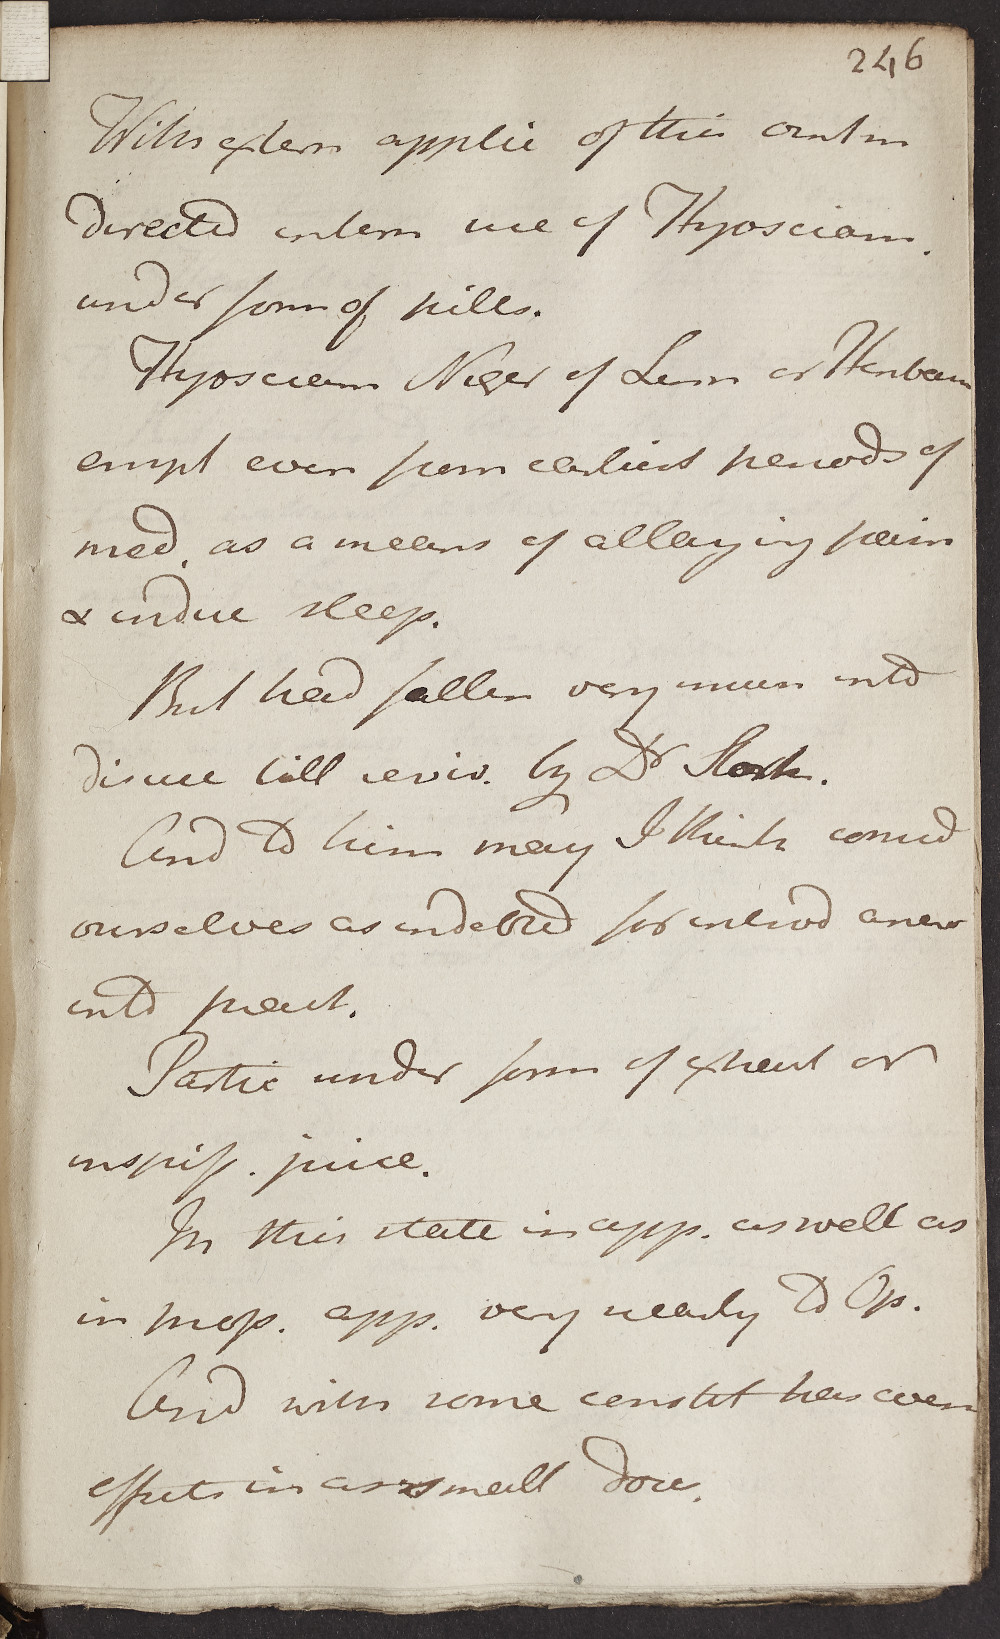 246
With extern applic of this ointm
directed intern use of Hyosciam.
under form of pills.
Hyosciam Niger of Linn or Henbane
empl even from earliest periods of
med. as a means of allaying pain
& indue sleep.
But had fallen very much into
disuse till reviv. by Dr Stork.
And to him may I think consid
ourselves as indebted for introd anew
into pract.
Partic under form of extract or
inspiss. juice.
In this state in app. as well as
in prop. app. very nearly to Op.
And with some constit has even
effects in as small dose.